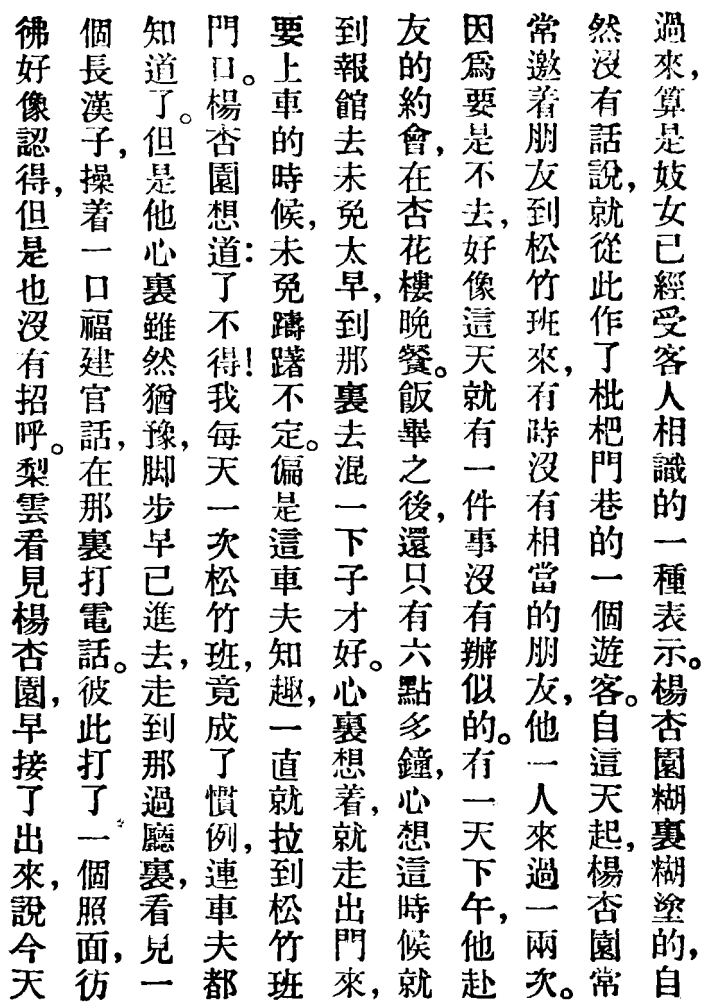 過來,算是妓女已經受客人相識的一種表示。楊杏園糊裏糊塗的,自
然沒有話說,就從此作了枇杷門巷的一個遊客。自這天起,楊杏園常
常邀着朋友到松竹班來,有時沒有相當的朋友,他一人來過一兩次。
因爲要是不去,好像這天就有一件事沒有辦似的。有一天下午,他赴
友的約會,在杏花樓晚餐。飯畢之後,還只有六點多鐘,心想這時候就
到報館去未免太早,到那裏去混一下子才好。心裏想着,就走出門來,
要上車的時候,未免躊躇不定。偏是這車夫知趣,一直就拉到松竹班
門口。楊杏園想道:了不得!我每天一次松竹班,竟成了慣例,連車夫都
知道了。但是他心裏雖然猶豫,脚步早已進去,走到那過廳裏,看見一
個長漢子,操着一口福建官話,在那裏打電話。彼此打了一個照面,彷
彿好像認得,但是也沒有招呼。梨雲看見楊杏園,早接了出來,說今天